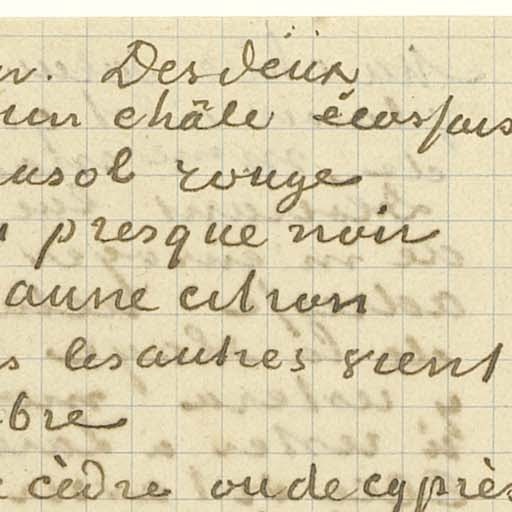 Des deux
un châle écossais
rouge
presque noir
citron
les autres vient
cèdre ou de cyprès